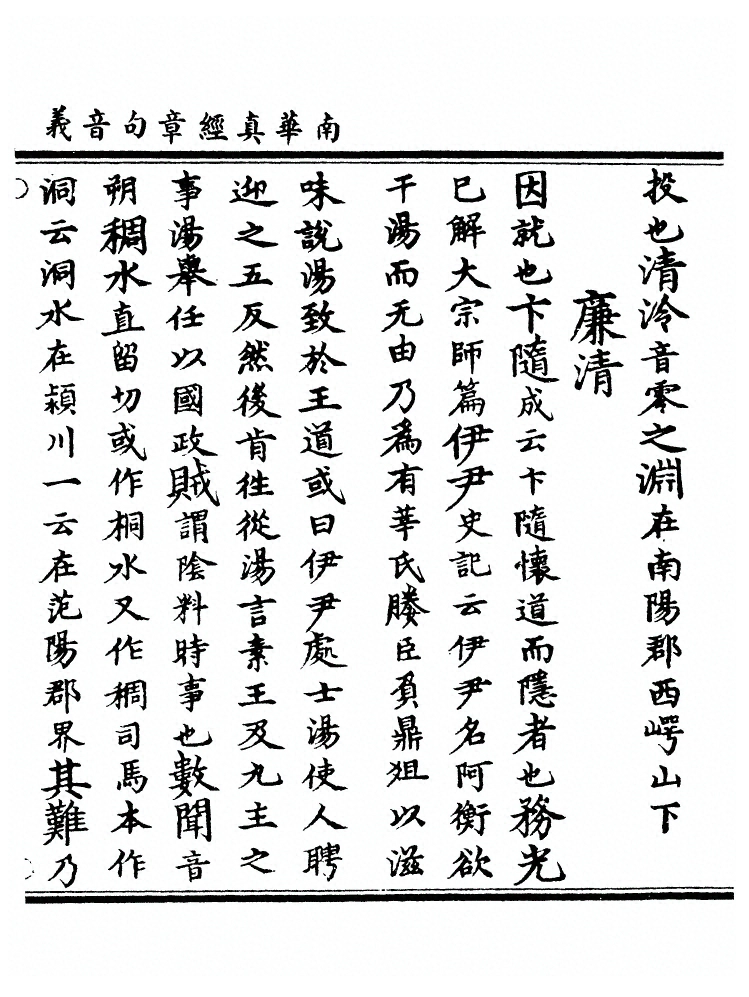 南華真經章句音義
投也清泠音零之淵在南陽郡西崿山下
廉清
因就也卞隨成云卞隨懷道而隱者也務光
已解大宗師篇伊尹史記云伊尹名阿衡欲
干湯而无由乃為有莘氏媵臣負鼎俎以滋
味說湯致於王道或曰伊尹處士湯使人聘
迎之五反然後肯徃從湯言素王及九主之
事湯舉任以國政賊謂陰料時事也數聞音
朔稠水直留切或作桐水又作稠司馬本作
洞云洞水在潁川一云在范陽郡界其難乃